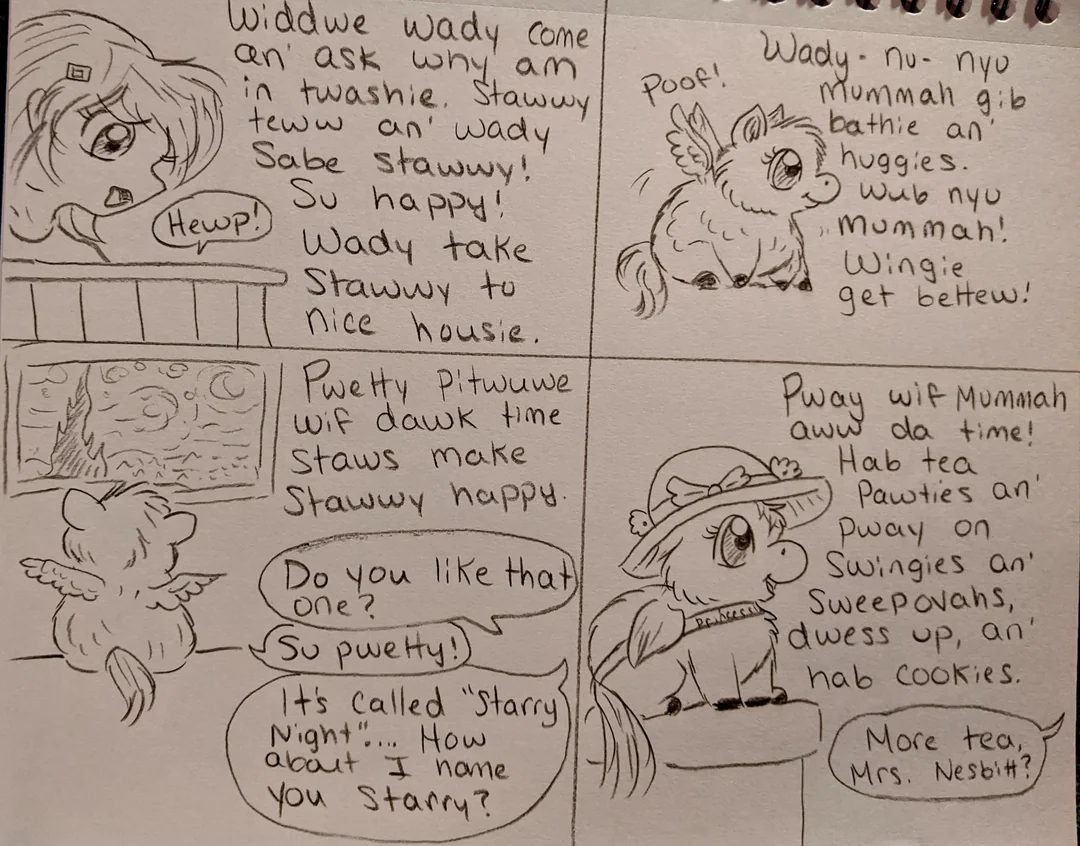 Widdwe wady come
an' ask why am
in twashie. Stawwy
teww an' wady
Sabe stawwy!
Su happy!
Wady take
Stawwy to
nice housie.
Hewp!
Poof!
Wady- nu- nyu
mummah gib
bathie an'
huggies.
Wub nyu
mummah!
Wingie
get bettew!
Pwetty pitwuwe
wif dawk time
staws make
Stawwy happy.
Do you like that
one?
Su pwetty!
It's called "Starry
Night".... How
about I name
you Starry?
Pway wif Mummah
aww da time!
Hab tea
Pawties an'
pway on
Swingies an'
Sweepovahs,
dwess up, an'
hab cookies.
Princess
More tea,
Mrs. Nesbitt?